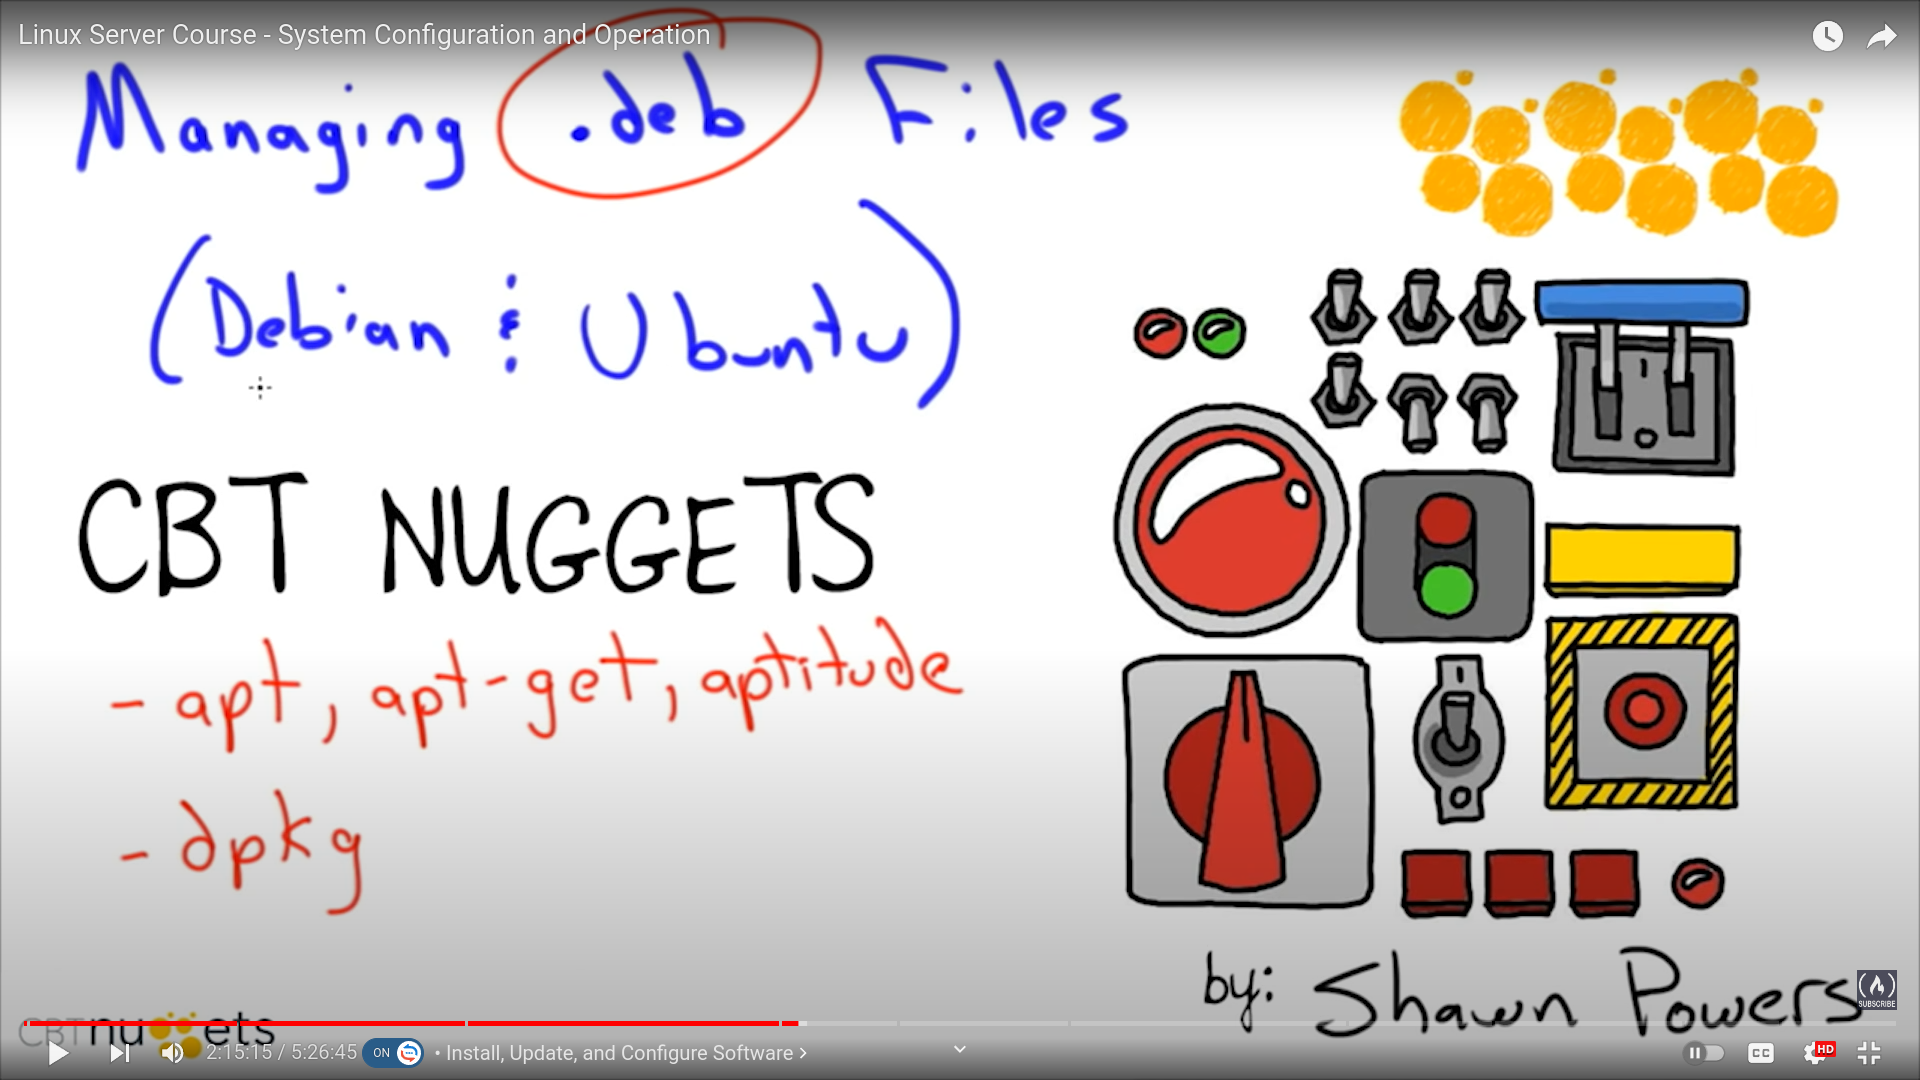 Linux Server Course - System Configuration and Operation
Managing .deb Files
(Debian & Ubuntu)
CBT NUGGETS
- apt, apt-get, aptitude
- dpkg
by: Shawn Powers
SUBSCRIBE
CBTnuggets
2:15:15 / 5:26:45
ON
• Install, Update, and Configure Software >
CC
HD